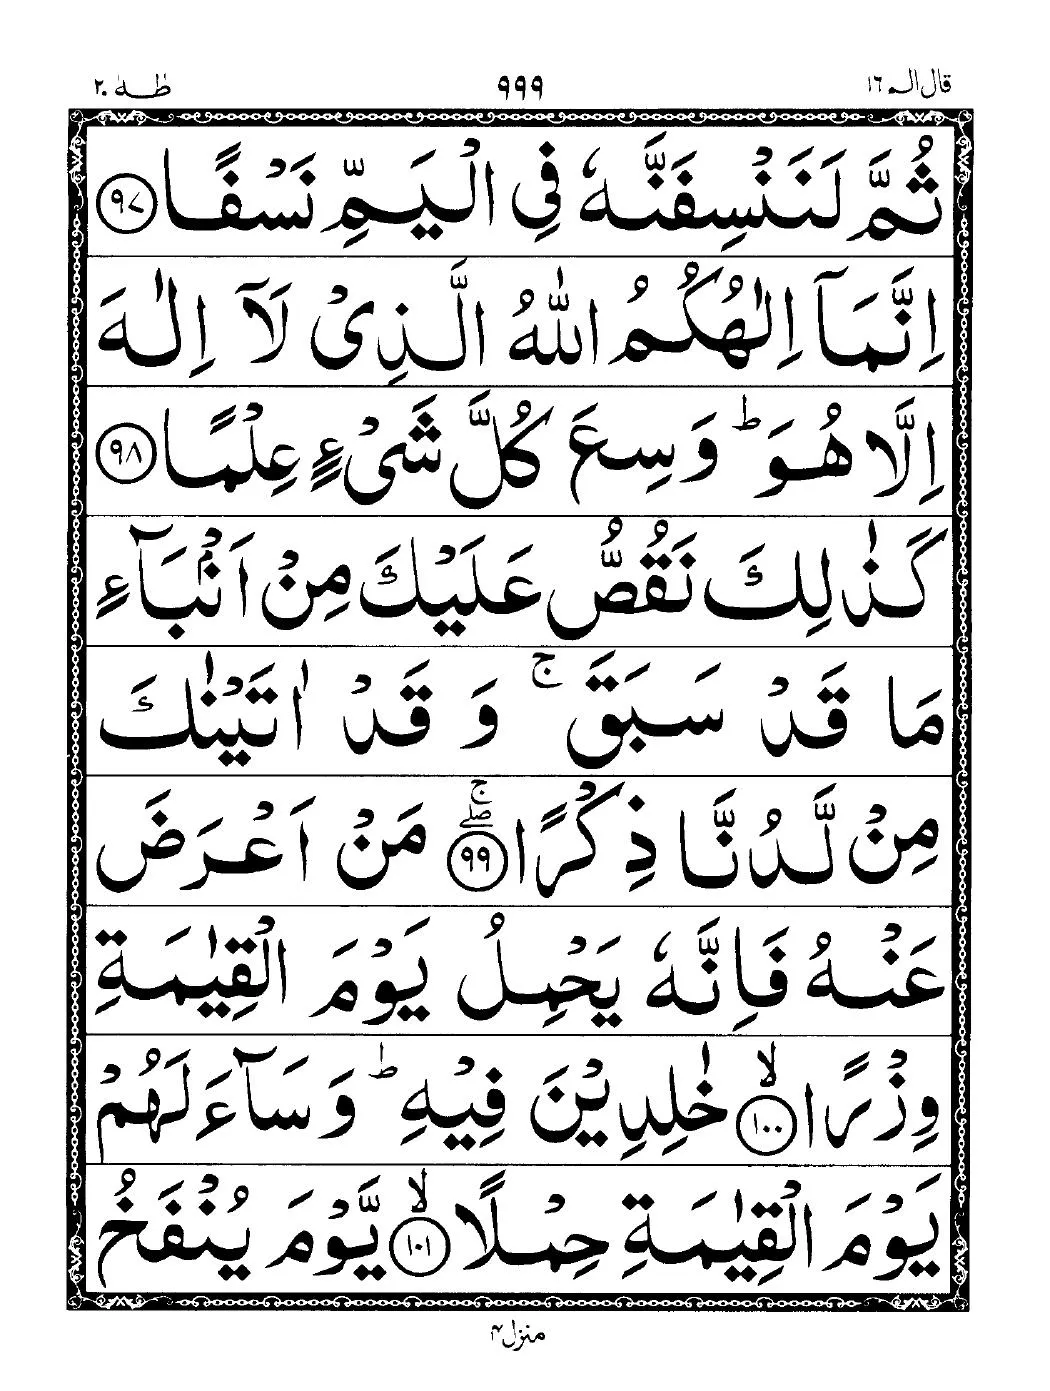 قال الم ١٦
٩٩٩
طٰهٰ ٢٠
ثُمَّ لَنَنْسِفَنَّهٗ فِي الْيَمِّ نَسْفًا ﴿٩٧﴾
اِنَّمَاۤ اِلٰهُكُمُ اللّٰهُ الَّذِيْ لَاۤ اِلٰهَ
اِلَّا هُوَ ؕ وَسِعَ كُلَّ شَيْءٍ عِلْمًا ﴿٩٨﴾
كَذٰلِكَ نَقُصُّ عَلَيْكَ مِنْ اَنْۢبَآءِ
مَا قَدْ سَبَقَ ۚ وَ قَدْ اٰتَيْنٰكَ
مِنْ لَّدُنَّا ذِكْرًا ۖۚ ﴿٩٩﴾ مَنْ اَعْرَضَ
عَنْهُ فَاِنَّهٗ يَحْمِلُ يَوْمَ الْقِيٰمَةِ
وِزْرًا ۙ ﴿١٠٠﴾ خٰلِدِيْنَ فِيْهِ ؕ وَسَآءَ لَهُمْ
يَوْمَ الْقِيٰمَةِ حِمْلًا ۙ ﴿١٠١﴾ يَّوْمَ يُنْفَخُ
منزل ٤